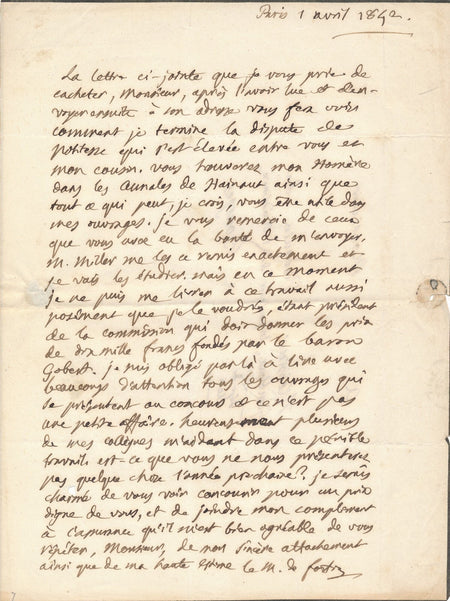 Paris 1 avril 1842.
La lettre ci-jointe que je vous prie de
cacheter, Monsieur, après l'avoir lue et d'en-
voyer ensuite à son adresse vous fera voir
comment je termine la dispute de
politesse qui s'est élevée entre vous et
mon cousin. vous trouverez mon
dans les annales de Hainaut ainsi que
tout ce qui peut, je crois, vous être utile dans
mes ouvrages. je vous remercie de ceux
que vous avez eu la bonté de m'envoyer.
M. Miller me les a remis exactement et
je vais les étudier. mais en ce moment
je ne puis me livrer à ce travail aussi
posément que je le voudrois, étant président
de la commission qui doit donner les prix
de dix mille francs fondés par le baron
Gobert. je suis obligé par là à lire avec
beaucoup d'attention tous les ouvrages qui
se présentent au concours et ce n'est pas
une petite affaire. heureusement plusieurs
de mes collègues m'aident dans ce pénible
travail. est-ce que vous ne nous présenterez
pas quelque chose l'année prochaine? je serois
charmé de vous voir concourir pour un prix
digne de vous, et de joindre mon compliment
à l'assurance qu'il m'est bien agréable de vous
répéter, Monsieur, de mon sincère attachement
ainsi que de ma haute estime le M. de fortia